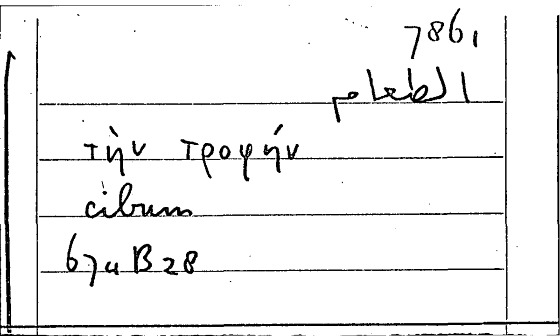 786,
الطعام
τὴν τροφήν
cibum
674 B 28